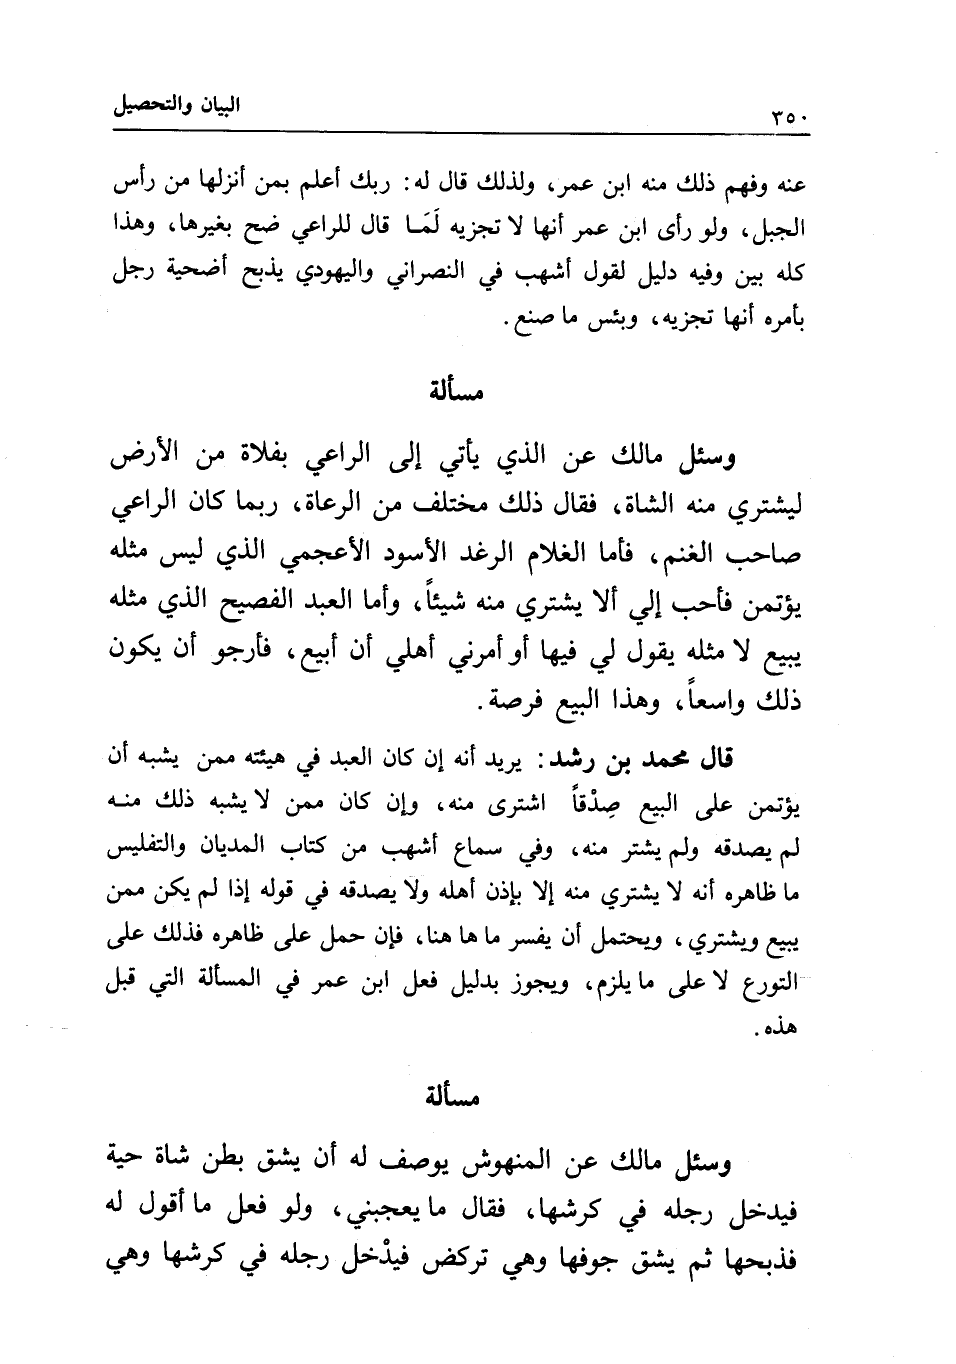 البيان والتحصيل
٣٥٠
عنه وفهم ذلك منه ابن عمر، ولذلك قال له: ربك أعلم بمن أنزلها من رأس
الجبل، ولو رأى ابن عمر أنها لا تجزيه لَمَا قال للراعي ضح بغيرها، وهذا
كله بين وفيه دليل لقول أشهب في النصراني واليهودي يذبح أضحية رجل
بأمره أنها تجزيه، وبئس ما صنع.
مسألة
وسئل مالك عن الذي يأتي إلى الراعي بفلاة من الأرض
ليشتري منه الشاة، فقال ذلك مختلف من الرعاة، ربما كان الراعي
صاحب الغنم، فأما الغلام الرغد الأسود الأعجمي الذي ليس مثله
يؤتمن فأحب إلي ألا يشتري منه شيئاً، وأما العبد الفصيح الذي مثله
يبيع لا مثله يقول لي فيها أو أمرني أهلي أن أبيع، فأرجو أن يكون
ذلك واسعاً، وهذا البيع فرصة.
قال محمد بن رشد: يريد أنه إن كان العبد في هيئته ممن يشبه أن
يؤتمن على البيع صِدْقاً اشترى منه، وإن كان ممن لا يشبه ذلك منه
لم يصدقه ولم يشتر منه، وفي سماع أشهب من كتاب المديان والتفليس
ما ظاهره أنه لا يشتري منه إلا بإذن أهله ولا يصدقه في قوله إذا لم يكن ممن
يبيع ويشتري، ويحتمل أن يفسر ما ها هنا، فإن حمل على ظاهره فذلك على
التورع لا على ما يلزم، ويجوز بدليل فعل ابن عمر في المسألة التي قبل
هذه.
مسألة
وسئل مالك عن المنهوش يوصف له أن يشق بطن شاة حية
فيدخل رجله في كرشها، فقال ما يعجبني، ولو فعل ما أقول له
فذبحها ثم يشق جوفها وهي تركض فيدْخل رجله في كرشها وهي